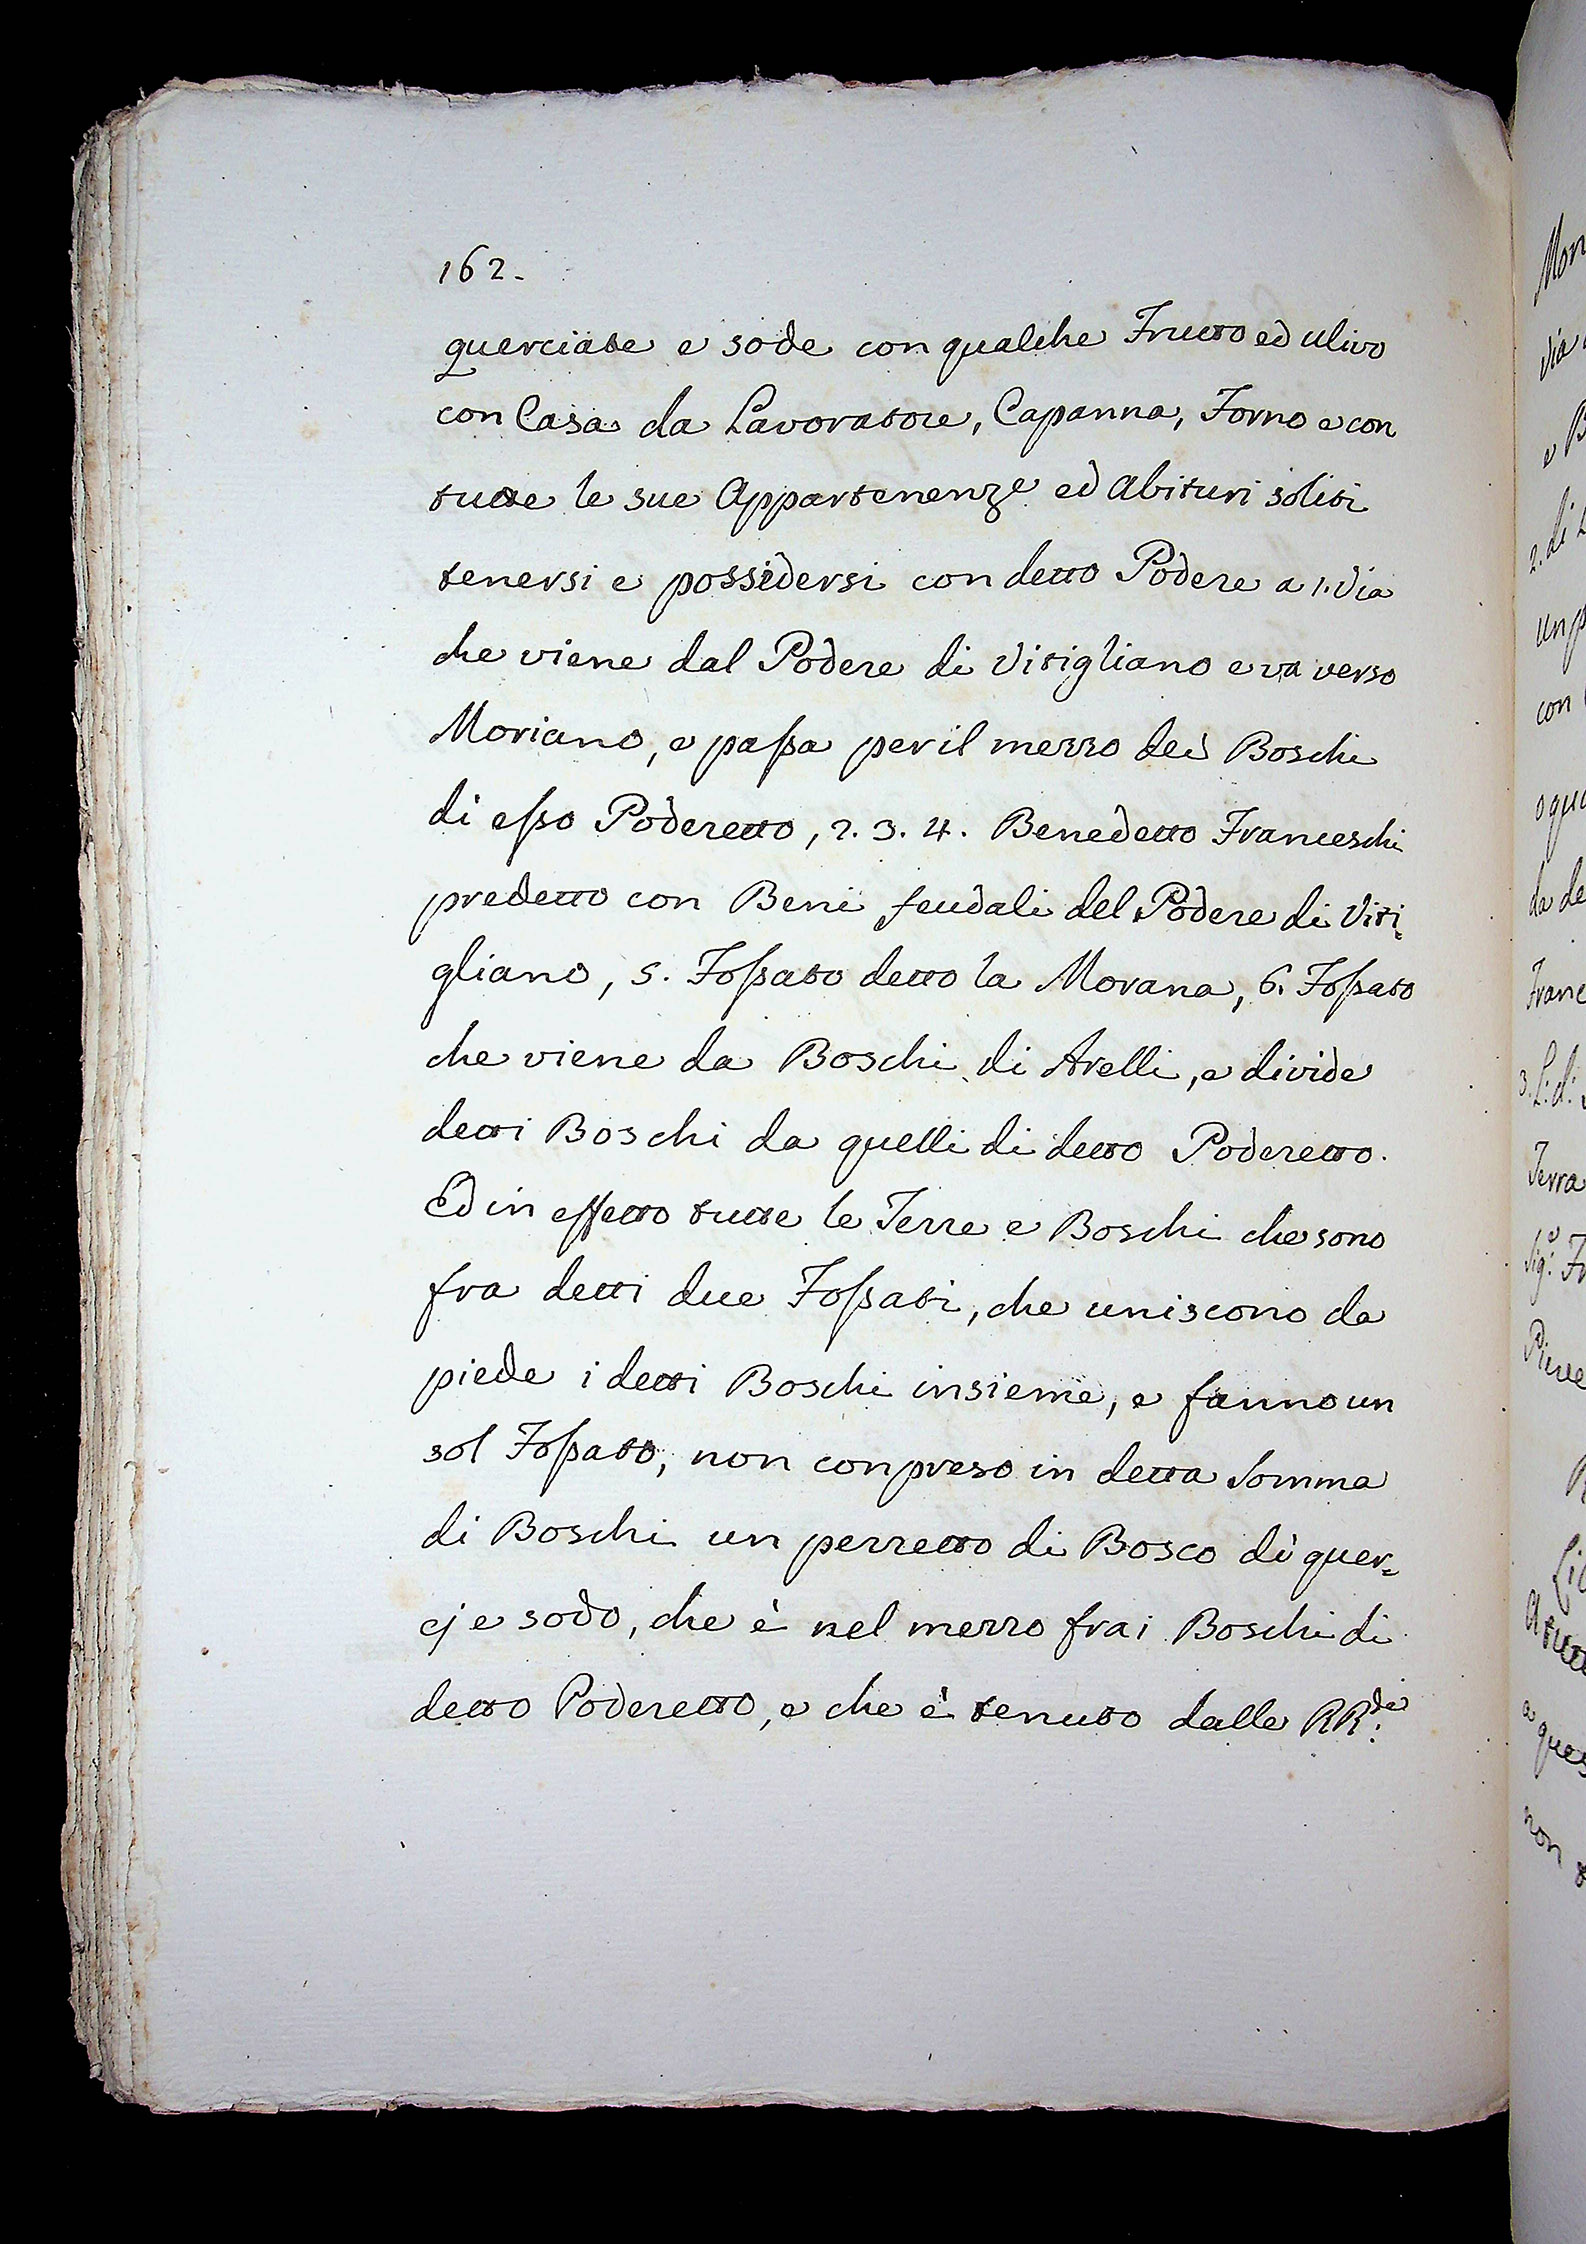 162.
querciate e sode con qualche Frutto ed ulivo
con Casa da Lavoratore, Capanna, Forno e con
tutte le sue Appartenenze ed Abituri soliti
tenersi e possidersi con detto Podere a 1. Via
che viene dal Podere di Vitigliano e va verso
Moriano, e passa per il mezzo dei Boschi
di esso Poderetto, 2. 3. 4. Benedetto Franceschi
predetto con Beni feudali del Podere di Viti=
gliano, 5. Fossato detto la Morana, 6. Fossato
che viene da Boschi di Avelli, e divide
detti Boschi da quelli di detto Poderetto.
Ed in effetto tutte le Terre e Boschi che sono
fra detti due Fossati, che uniscono da
piede i detti Boschi insieme, e fanno un
sol Fossato, non conpreso in detta Somma
di Boschi un pezzetto di Bosco di quer=
cj e sodo, che è nel mezzo frai Boschi di
detto Poderetto, e che è tenuto dalle RR.de
Mon
via
e B
2. di L
un p
con
o qua
da de
Franc
3. L: d:
Terra
Sig.e Fr
Pieve
a ques
non